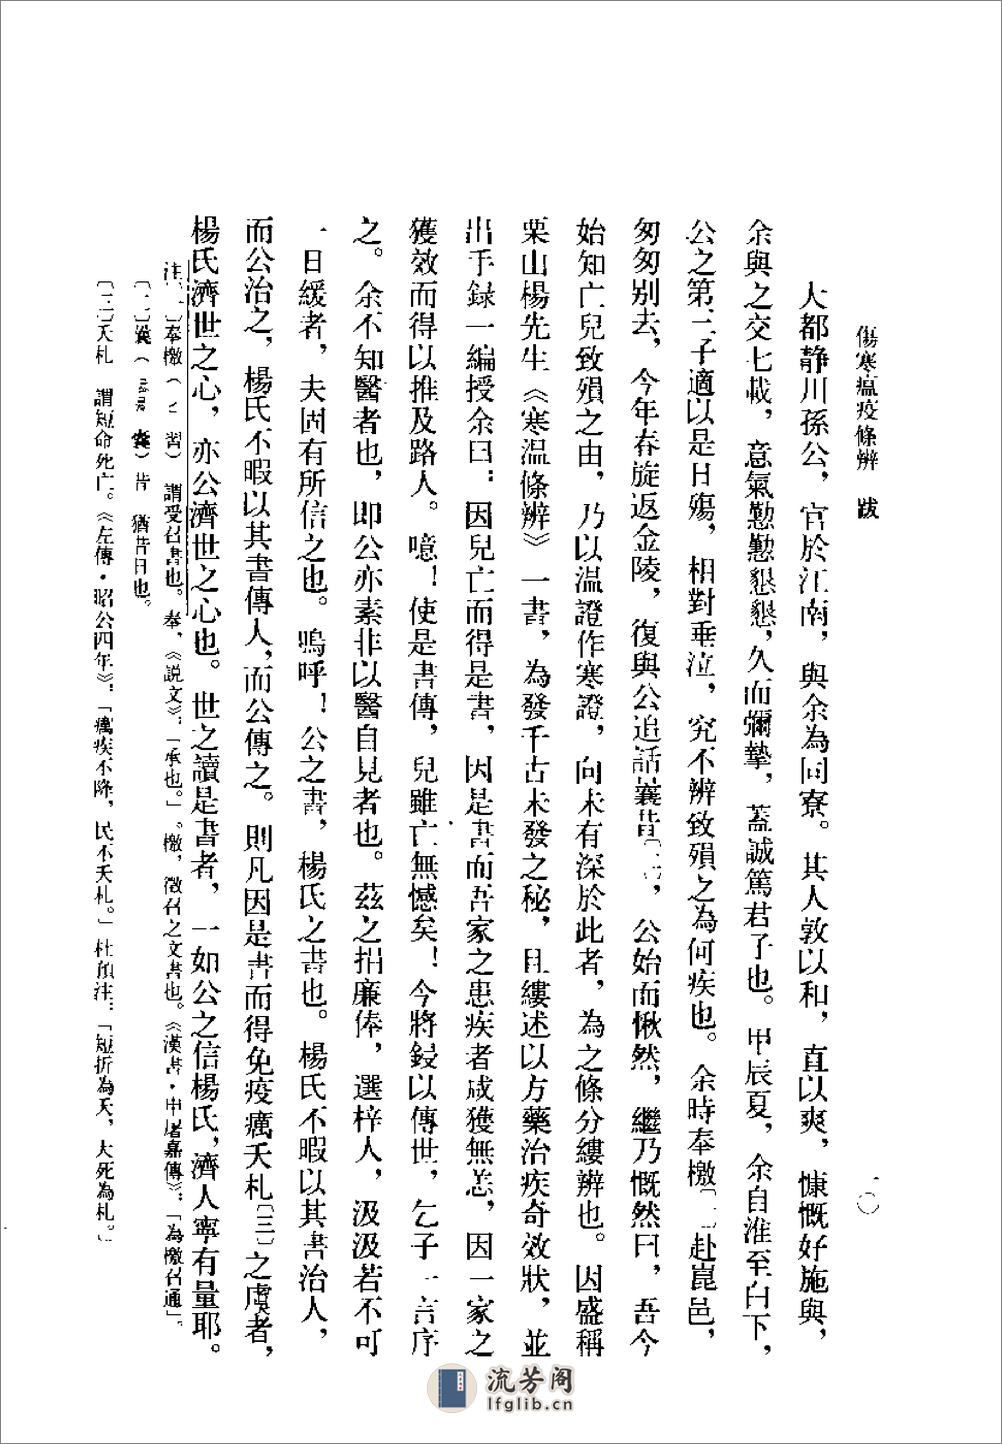 傷寒瘟疫條辨　跋
一〇
大都静川孫公，官於江南，與余為同寮。其人敦以和，直以爽，慷慨好施與，
余與之交七載，意氣懃懃懇懇，久而彌摯，蓋誠篤君子也。甲辰夏，余自淮至白下，
公之第三子適以是日殤，相對垂泣，究不辨致殞之為何疾也。余時奉檄〔一〕赴崑邑，
匆匆别去，今年春旋返金陵，復與公追話曩昔〔二〕，公始而愀然，繼乃慨然曰，吾今
始知亡兒致殞之由，乃以温證作寒證，向未有深於此者，為之條分縷辨也。因盛稱
栗山楊先生《寒温條辨》一書，為發千古未發之秘，且縷述以方藥治疾奇效狀，並
出手録一編授余曰：因兒亡而得是書，因是書而吾家之患疾者咸獲無恙，因一家之
獲效而得以推及路人。噫！使是書傳，兒雖亡無憾矣！今將鋟以傳世，乞子一言序
之。余不知醫者也，即公亦素非以醫自見者也。茲之捐廉俸，選梓人，汲汲若不可
一日緩者，夫固有所信之也。嗚呼！公之書，楊氏之書也。楊氏不暇以其書治人，
而公治之，楊氏不暇以其書傳人，而公傳之。則凡因是書而得免疫癘夭札〔三〕之虞者，
楊氏濟世之心，亦公濟世之心也。世之讀是書者，一如公之信楊氏，濟人寧有量耶。
注〔一〕奉檄（　習）　謂受召書也。奉，《説文》：「承也。」。檄，徵召之文書也。《漢書·申屠嘉傳》：「為檄召通」。
〔二〕曩（　囊）昔　猶昔日也。
〔三〕夭札　謂短命死亡。《左傳·昭公四年》：「癘疾不降，民不夭札。」杜預注：「短折為夭，大死為札。」
流芳阁
lfglib.cn